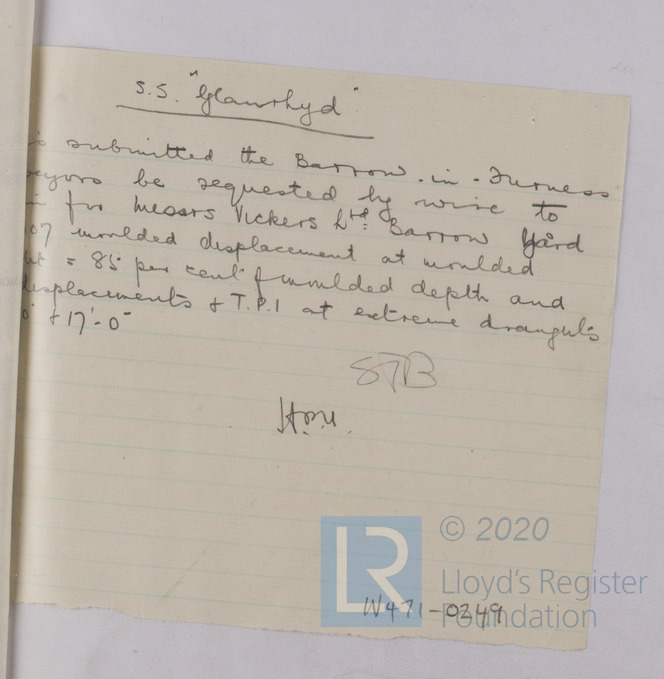 S.S. "Glanrhyd"
submitted the Barrow-in-Furness
veyors be requested by wire to
in fro Messrs Vickers Ltd. Barrow Yard
07 moulded displacement at moulded
ht = 85 per cent of moulded depth and
displacements & T.P.I at extreme draughts
0" & 17'-0"
STB
LR
© 2020
Lloyd's Register
Foundation
W471-0249